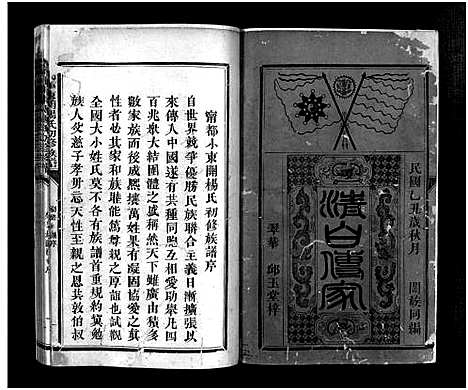 民國乙丑歲秋月
闔族同編
清白傳家
翠華 邱玉堂梓
甯都小東關楊氏初修族譜序
自世界競爭優勝民族聯合主義日漸擴張以
來傳入中國遂有共種同胞互相愛助舉凡四
百兆眾大結團體之盛稱然天下雖廣由積多
數家族而成熙攘萬姓果有凝固協愛之真
性者必其家和族睦能萬尊親之厚龍也試觀
全國大小姓氏莫不各有族譜首重規約奠勉
族人父慈子孝毋忘天性至親之恩共敦伯叔